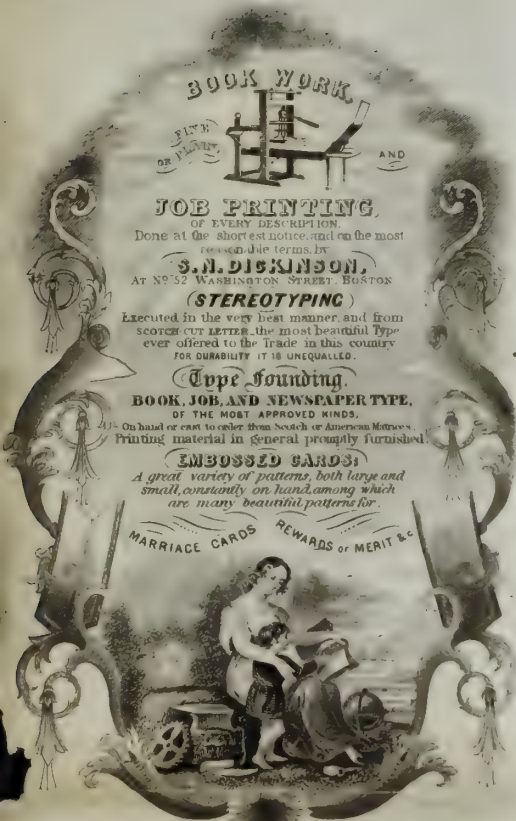 BOOK WORK,
FINE
OR PLAIN,
AND
JOB PRINTING,
OF EVERY DESCRIPTION,
Done at the shortest notice, and on the most
reasonable terms, by
S. N. DICKINSON,
AT No 52 WASHINGTON STREET, BOSTON
(STEREOTYPING)
Executed in the very best manner, and from
SCOTCH CUT LETTER, the most beautiful Type
ever offered to the Trade in this country
FOR DURABILITY IT IS UNEQUALLED.
Type Founding.
BOOK, JOB, AND NEWSPAPER TYPE,
OF THE MOST APPROVED KINDS,
On hand or cast to order from Scotch or American Matrices.
Printing material in general promptly furnished.
EMBOSSED CARDS:
A great variety of patterns, both large and
small, constantly on hand, among which
are many beautiful patterns for
MARRIAGE CARDS REWARDS OF MERIT &c